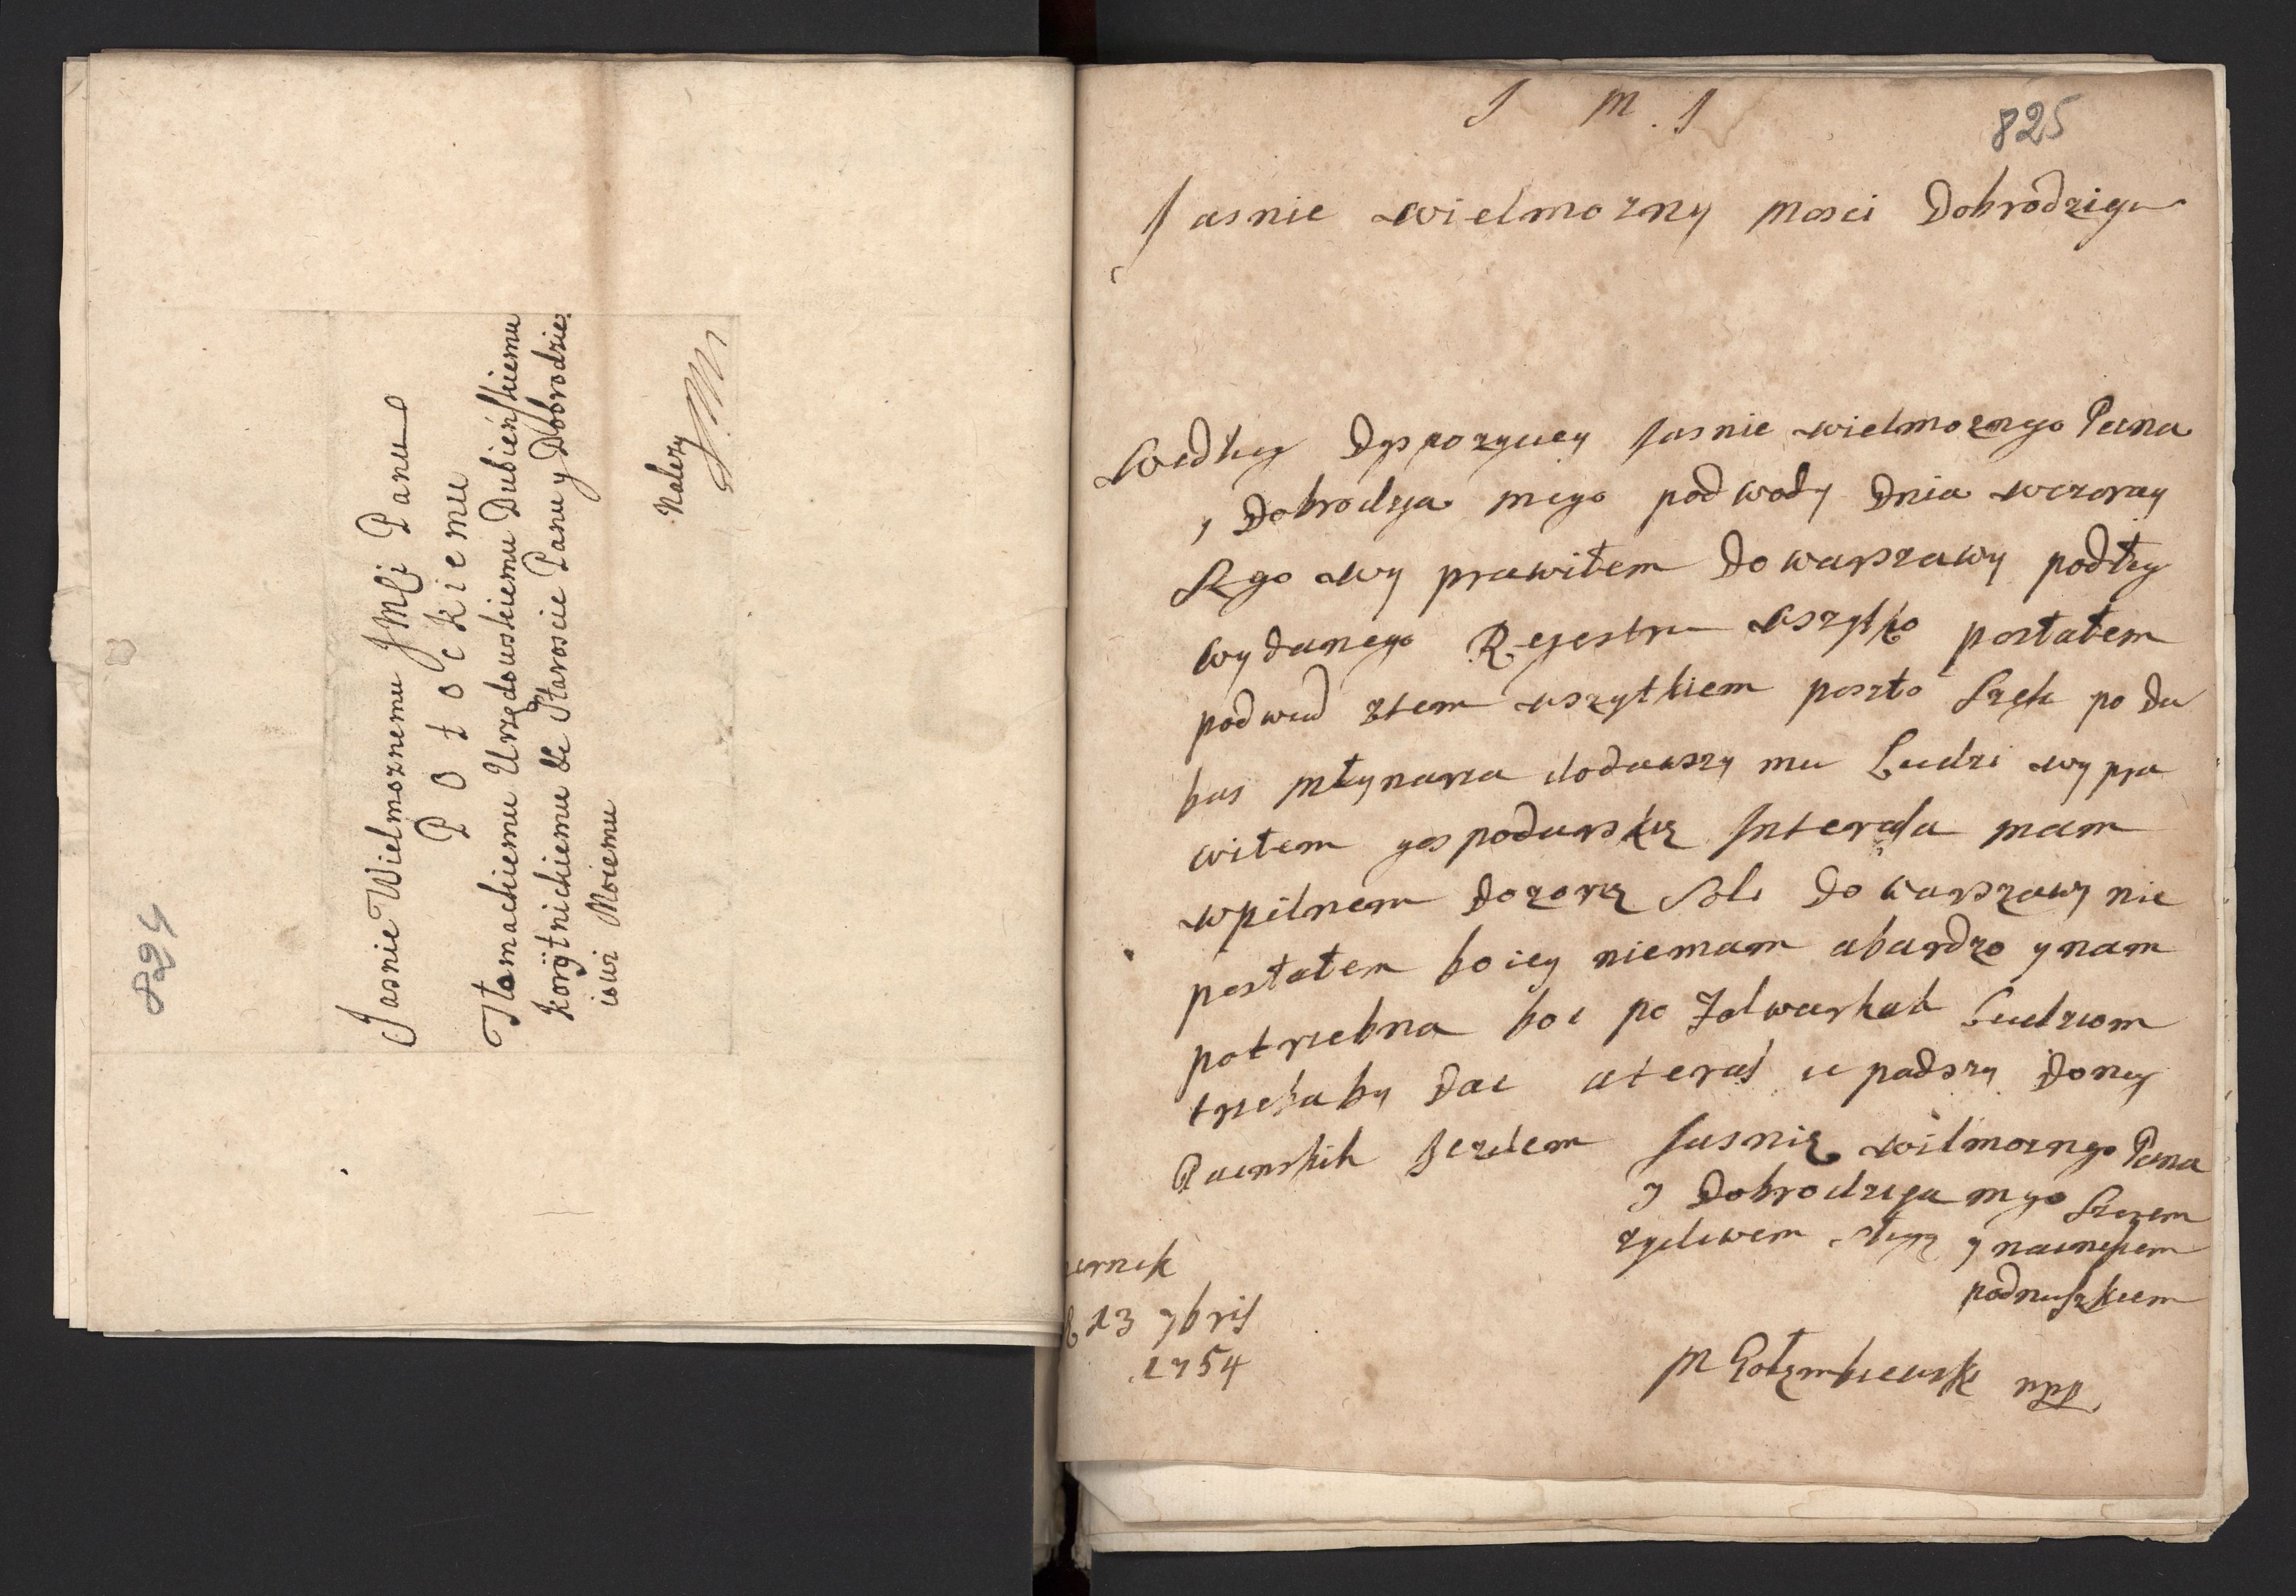 824
Jasnie Wielmoznemu JMCi Panu
Potockiemu
Tłomackiemu Urzędowskiemu Dubieńskiemu
Korytnickiemu &c Staroscie Panu y Dobrodzie
iowi Moiemu
Nalezy
825
J M . J
Jasnie wielmozny Mosci Dobrodzieju
Według Dyspozycyey Jasnie wielmoznego Pana
y Dobrodzja mego podwody Dnia wczoray
Szego wy prawiłem do warszawy podług
wydanego Rejestru wszytko posłałem
podwud ztem wszytkiem poszło Szesc po du
bas młynarza dodawszy mu Ludzi wypra
wiłem gospodarskie Interesa mam
wpilnem dozorze Soli do warszawy nie
posłałem bo iey niemam abardzo ynam
potrzebna bo i po Folwarkah Ludziom
trzebaby dac a teraś upadszy donog
Paenskih Jezdem Jasnie wilmoznego Pana
y Dobrodzieja mego
zyclewem sługą y nainiszem
podnuszkiem
13 7bris
1754
M Gołembiewsk mpp